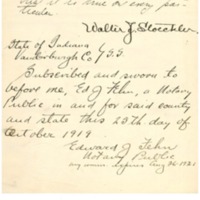 that it is true in every par-
ticular
Walter J. Stoechler.
State of Indiana
Vanderburgh Co } SS
Subscribed and sworn to
before me, Ed J Fehn, a Notary
Public in and for said county
and state this 25th day of
October 1919.
Edward J Fehn
Notary Public
my comm. expires Aug 26 1921